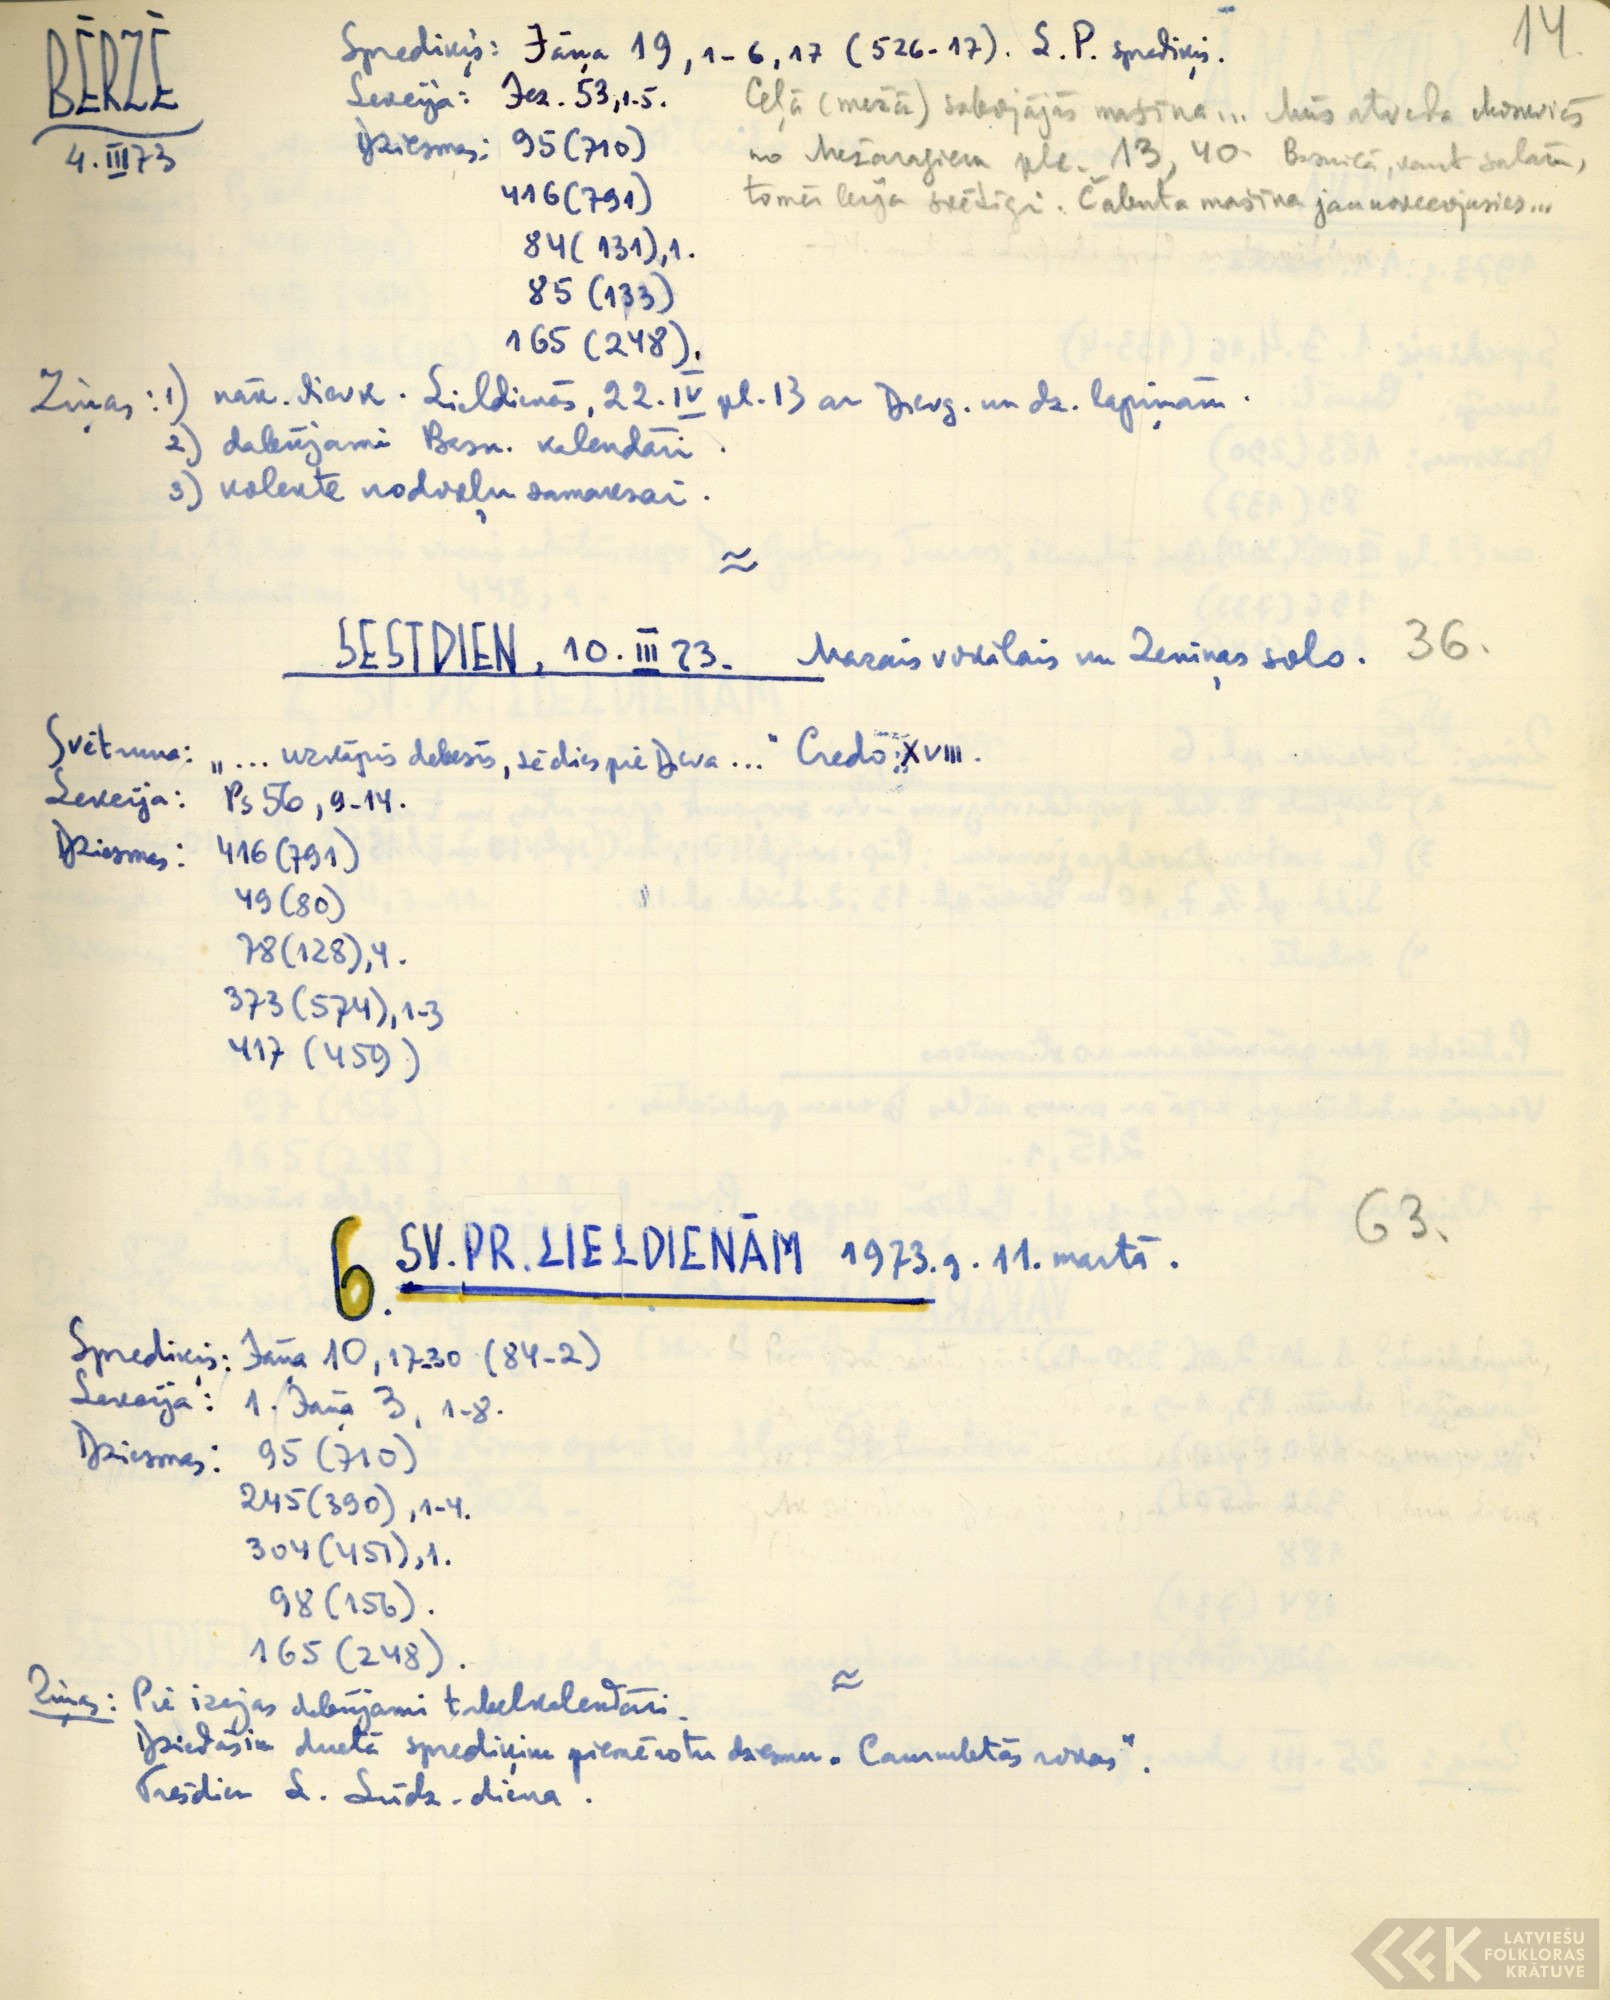 BĒRZĒ
4. III 73
14.
Sprediķis: Jāņa 19, 1-6, 17 (526-17). L. P. sprediķis.
Lekcija: Jez. 53, 1-5.
Dziesmas: 95 (710)
416 (791)
84 (131), 1.
85 (133)
165 (248).
Ceļā (mežā) salūzājās mašīna... Mūs atveda
no Mežaragiem plk. 13, 40. Baznīcā, kaut salām,
tomēr bija svētīgi. mašīna jau
Ziņas: 1) nāk. dievk. Lieldienās, 22. IV pl. 13 ar Dievg. un dz. lapiņām.
2) dabūjami Bazn. kalendāri.
3) kolekte nodokļu samaksai.
≈
SESTDIEN, 10. III 73. Mazais vokālais un Zeniņas solo. 36.
Svētruna: "... uzkāpis debesīs, sēdies pie Dieva ..." Credo: XVIII.
Lekcija: Ps 56, 9-14.
Dziesmas: 416 (791)
49 (80)
78 (128), 4.
373 (574), 1-3
417 (459)
63.
6. SV. PR. LIELDIENĀM 1973. g. 11. martā.
Sprediķis: Jāņa 10, 17-30 (84-2)
Lekcija: 1. Jāņa 3, 1-8.
Dziesmas: 95 (710)
245 (390), 1-4.
304 (451), 1.
98 (156).
165 (248).
≈
Ziņas: Pie izejas dabūjami tabelkalendāri.
Dziedāsim duetā sprediķim piemērotu dziesmu "Caurumbtās rokas".
Trešdien L. Lūdz. diena.
LATVIEŠU
FOLKLORAS
KRĀTUVE